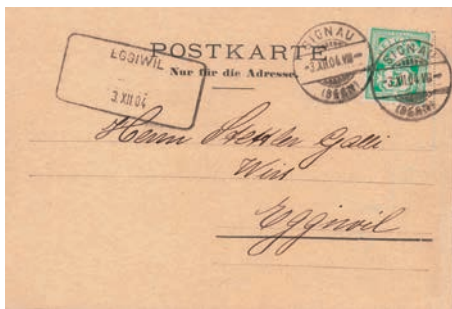 POSTKARTE
Nur für die Adresse.
EGGIWIL
3 XII 04
SIGNAU
-3.XII.04.VIII-
(BERN)
SIGNAU
-3.XII.04.VIII-
(BERN)
Herrn Stettler Galli
Wirt
Eggiwil